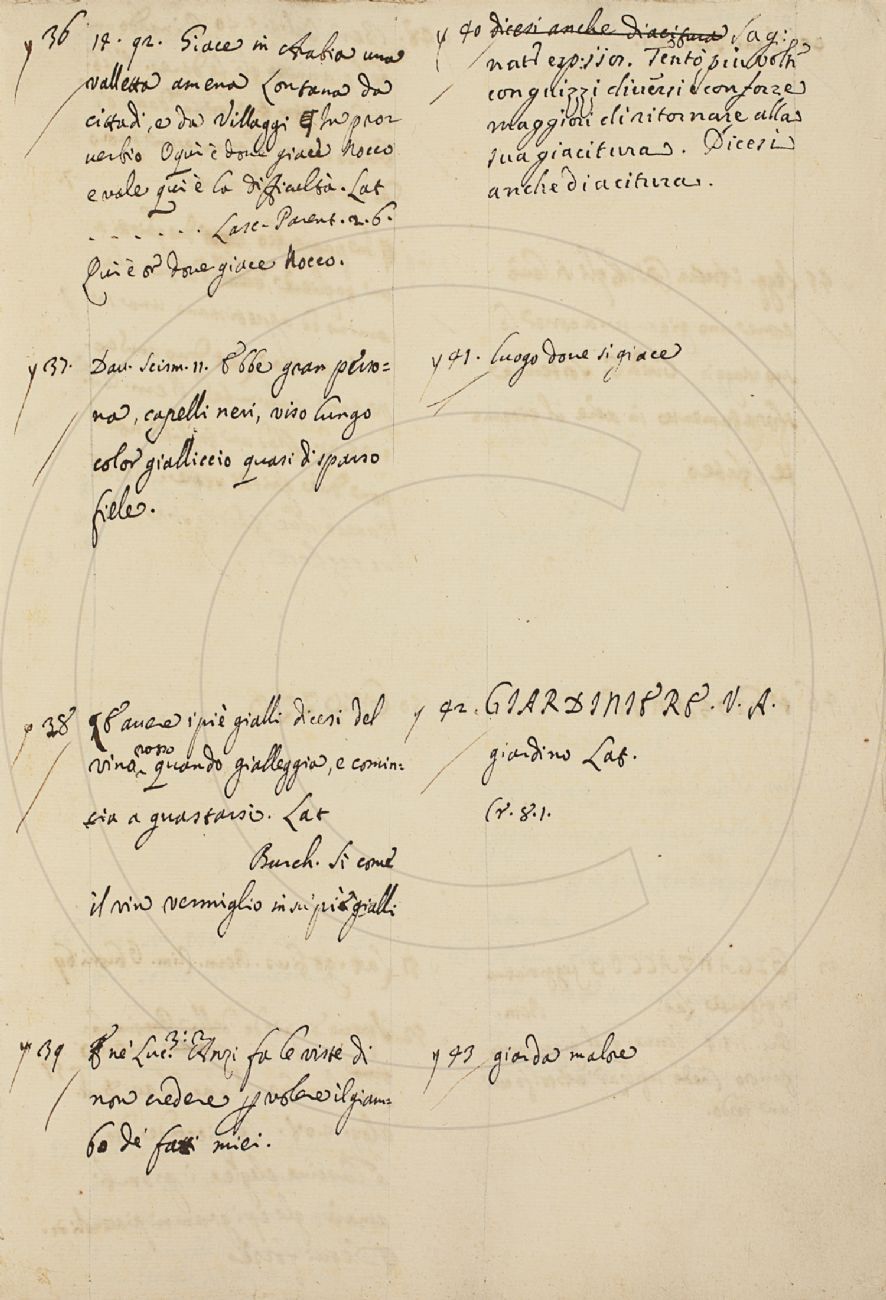 y 36 14. 92. Giace in Arabia una
valletta amena Lontana da
cittadi, e da Villaggi § In pro-
verbio O qui è dove giace Nocco
e vale qui è la difficultà. Lat
. . . . . . Lasc. Parent. 2. 6.
Qui è or dove giace Nocco.
y 37. Dav. Scism. 11. Ebbe gran perso=
na, capelli neri, viso lungo
color gialliccio quasi di sparso
fiele.
y 38 § E avere i piè gialli dicesi del
vino rosso quando gialleggia, e comin=
cia a guastarsi. Lat
Burch. Si come
il vin vermiglio in su' piè gialli
y 39 E nè Luc. 3: 2 Anzi fa le viste di
non credere p volere il giam=
bo de' fatti miei.
y 40 dicesi anche diacitura Sag:
nat esp: 110. Tentò più volte
con guizzi diversi e con forze
maggiori di ritornare alla
sua giacitura. Dicesi
anche diacitura.
y 41. luogo dove si giace
y 42. GIARDINIERE. V. A.
giardino Lat.
Cr. 8. 1.
y 43 giarda malore